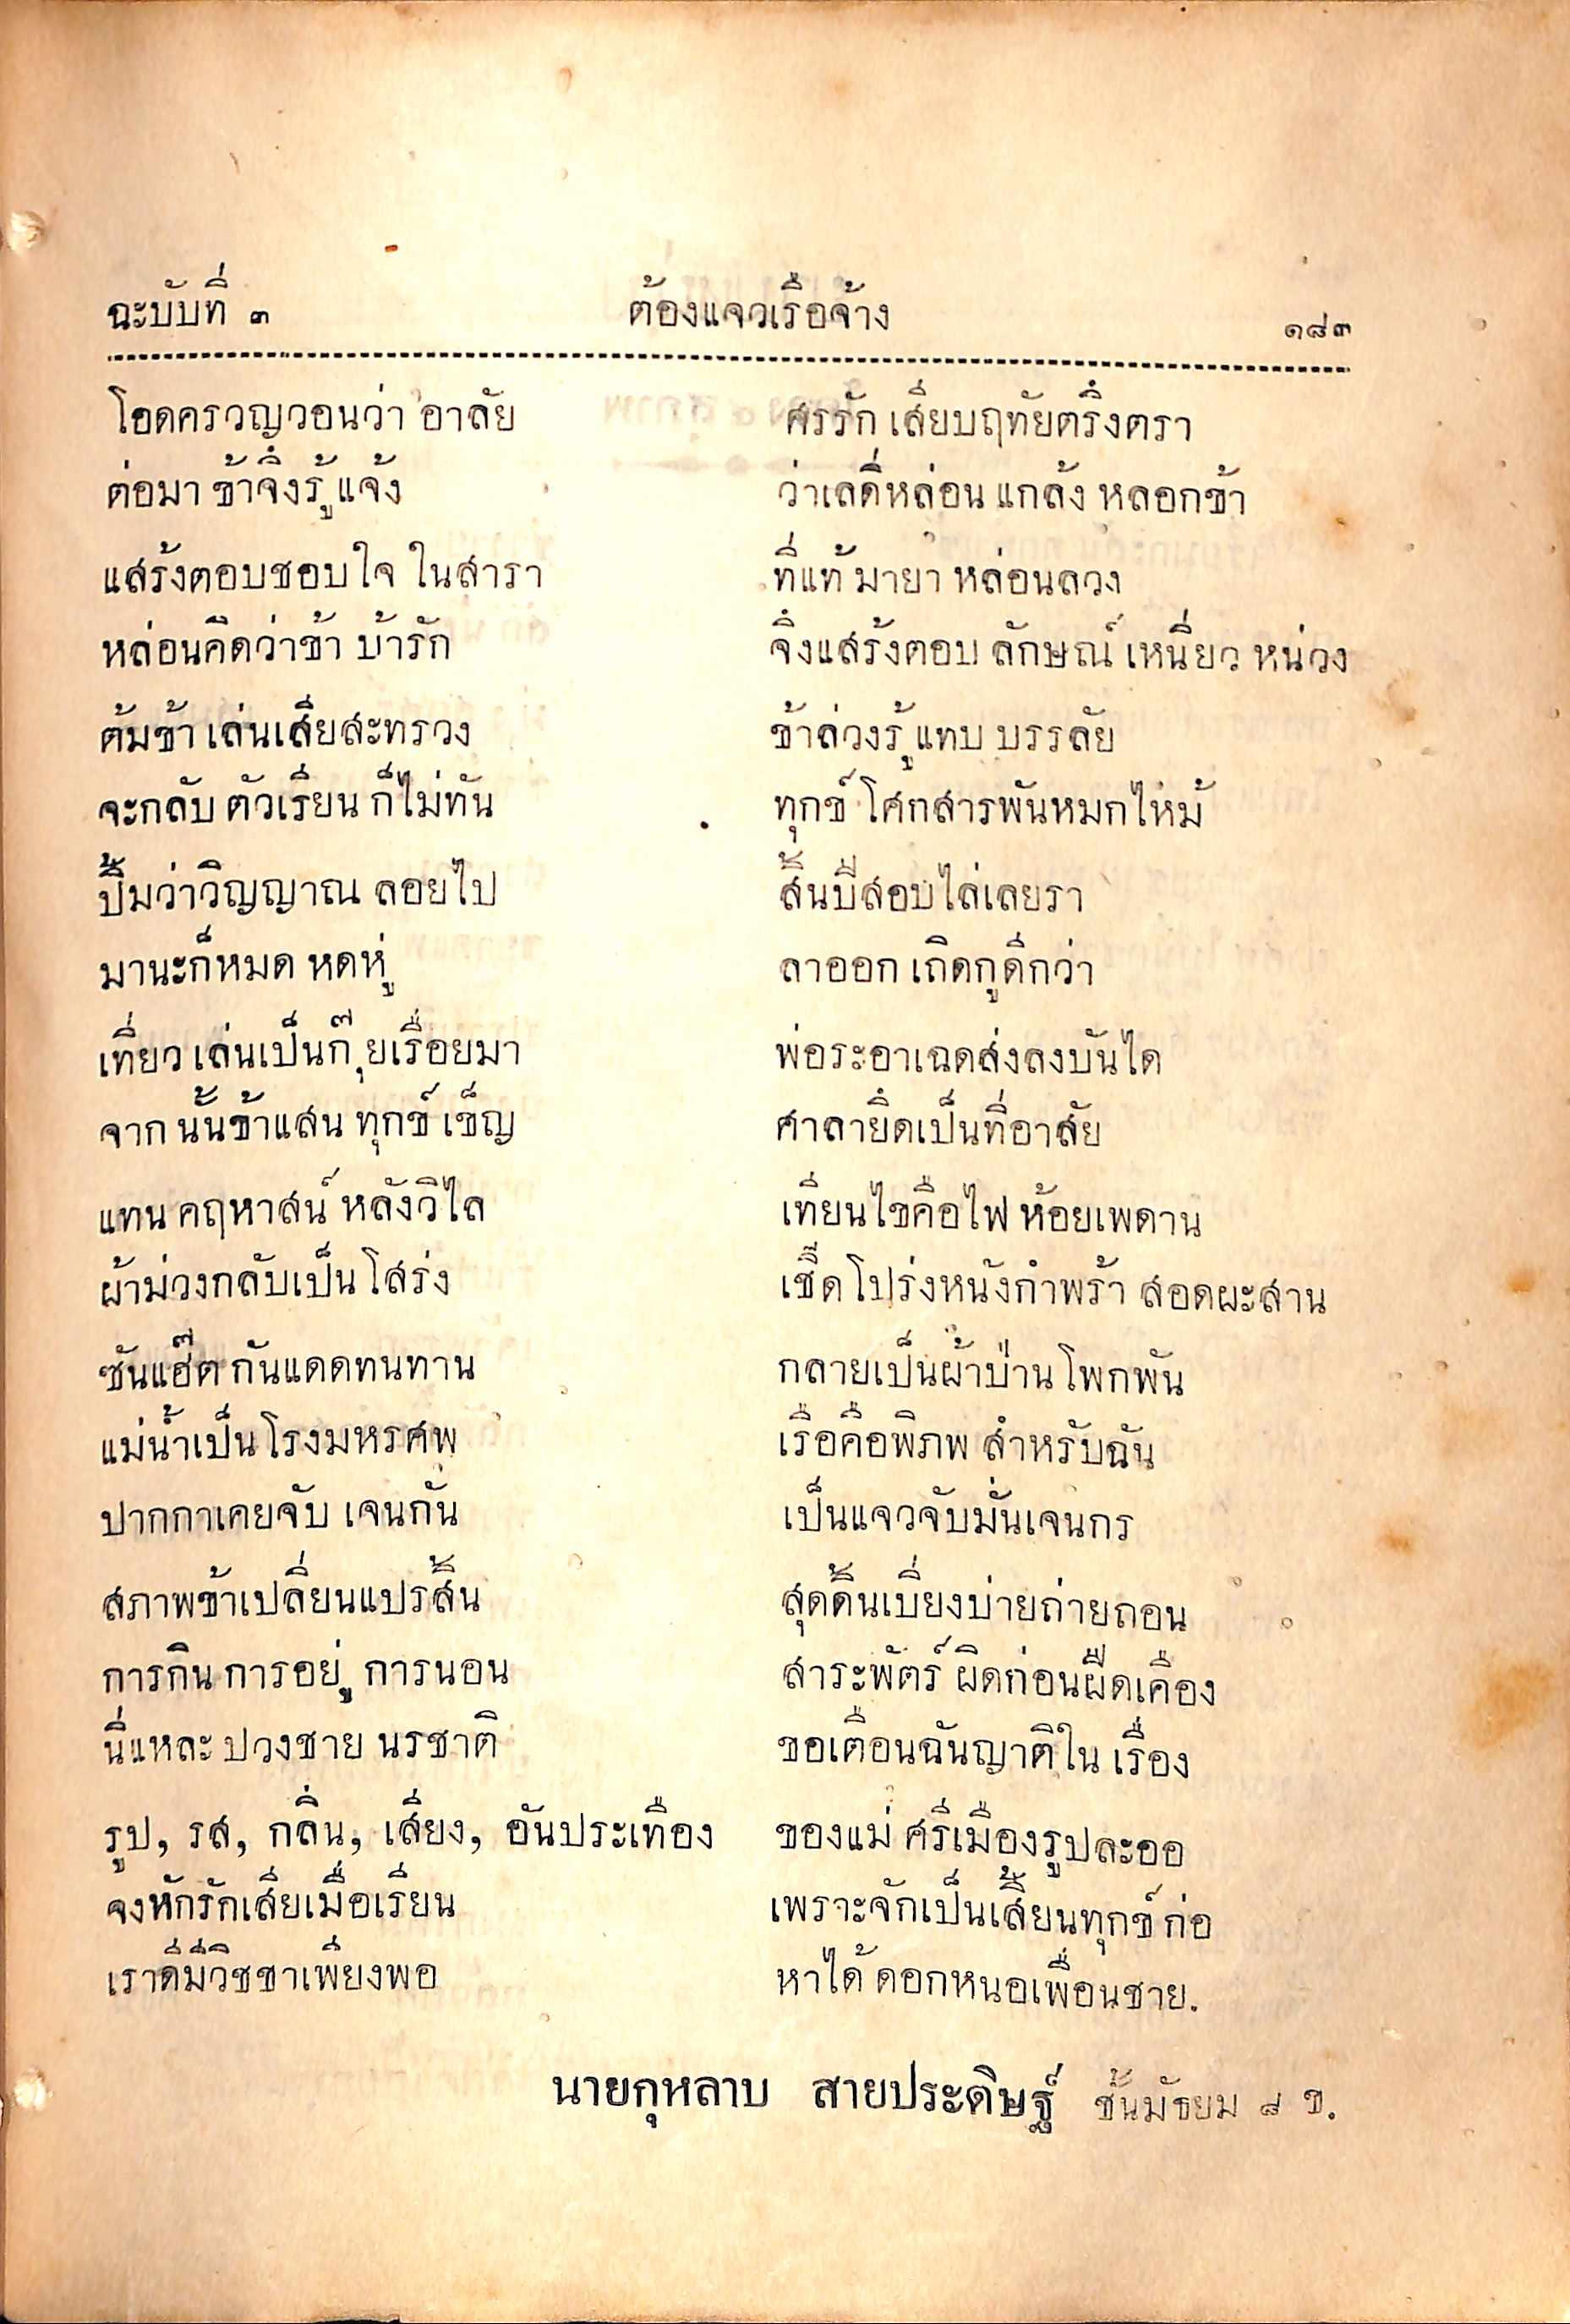 ฉะบับที่ ๓ ต้องแจวเรือจ้าง ๑๘๓
โอดครวญวอนว่า อาลัย ศรรัก เสียบฤทัยตรึงตรา
ต่อมา ข้าจึ่งรู้ แจ้ง ว่าเลดี้หล่อน แกล้ง หลอกข้า
แสร้งตอบชอบใจ ในสารา ที่แท้ มายา หล่อนลวง
หล่อนคิดว่าข้า บ้ารัก จึ่งแสร้งตอบ ลักษณ์ เหนี่ยว หน่วง
ต้มข้า เล่นเสียสะทรวง ข้าล่วงรู้ แทบ บรรลัย
จะกลับ ตัวเรียน ก็ไม่ทัน ทุกข์ โศกสารพันหมกไหม้
ปิ้มว่าวิญญาณ ลอยไป สิ้นปีสอบไล่เลยรา
มานะก็หมด หดหู่ ลาออก เถิดกูดีกว่า
เที่ยว เล่นเป็นกุ๊ยเรื่อยมา พ่อระอาเฉดส่งลงบันได
จาก นั้นข้าแสน ทุกข์ เข็ญ ศาลายึดเป็นที่อาสัย
แทน คฤหาสน์ หลังวิไล เทียนไขคือไฟ ห้อยเพดาน
ผ้าม่วงกลับเป็น โสร่ง เชิ๊ด โปร่งหนังกำพร้า สอดผะสาน
ซันแฮ๊ต กันแดดทนทาน กลายเป็นผ้าป่าน โพกพัน
แม่น้ำเป็น โรงมหรศพ เรือคือพิภพ สำหรับฉัน
ปากกาเคยจับ เจนกั่น เป็นแจวจับมั่นเจนกร
สภาพข้าเปลี่ยนแปรสิ้น สุดดิ้นเบี่ยงบ่ายถ่ายถอน
การกิน การอยู่ การนอน สาระพัตร์ ผิดก่อนฝืดเคือง
นี่แหละ ปวงชาย นรชาติ ขอเตือนฉันญาติใน เรื่อง
รูป, รส, กลิ่น, เสียง, อันประเทือง ของแม่ ศรีเมืองรูปละออ
จงหักรักเสียเมื่อเรียน เพราะจักเป็นเสี้ยนทุกข์ ก่อ
เราดีมีวิชชาเพียงพอ หาได้ ดอกหนอเพื่อนชาย.
นายกุหลาบ สายประดิษฐ์ ชั้นมัธยม ๘ ข.